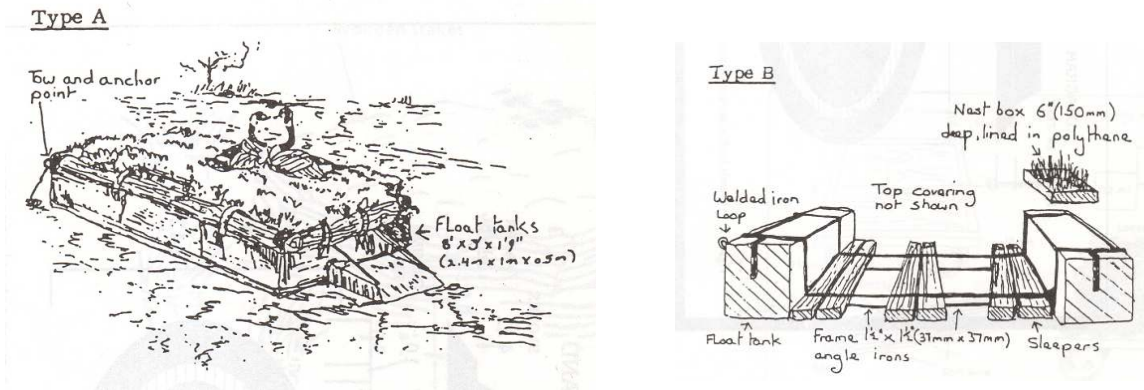 Type A
Tow and anchor
point
Float tanks
8' x 3' x 1'9"
(2.4m x 1m x 0.5m)
Type B
Nest box 6"(150mm)
deep, lined in polythene
Welded iron
loop
Top covering
not shown
Float tank
Frame 1½" x 1½"(37mm x 37mm)
angle irons
Sleepers